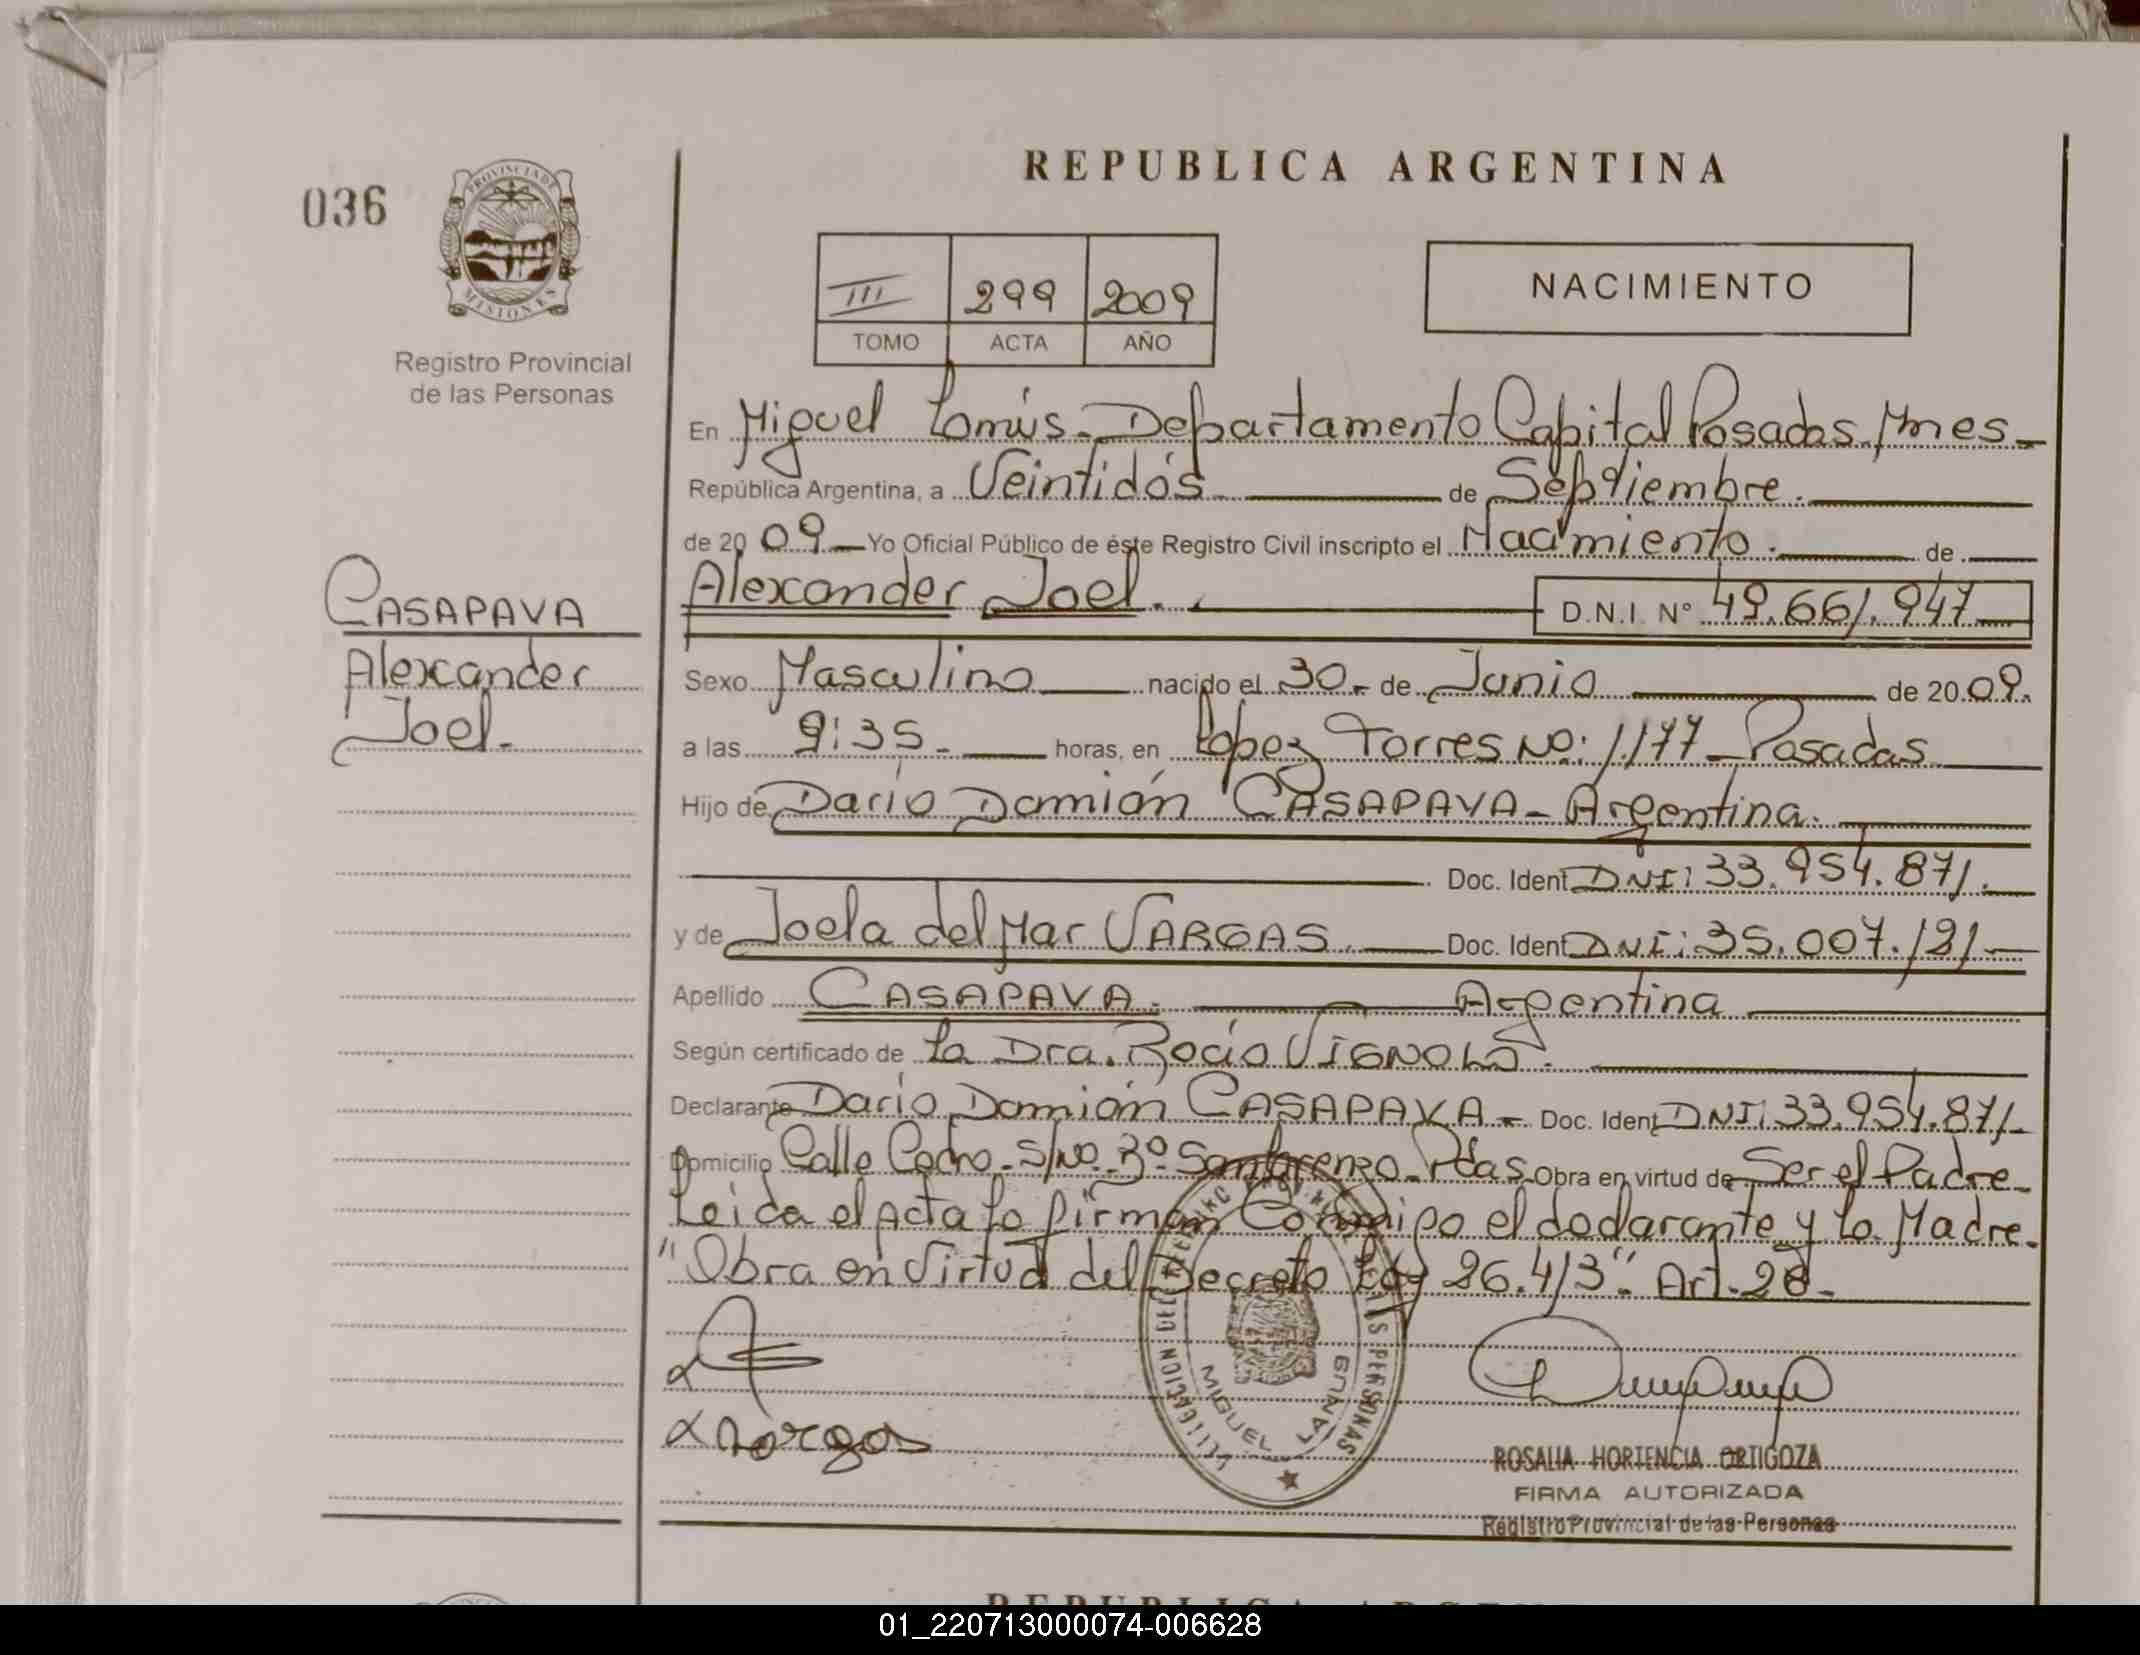 REPUBLICA ARGENTINA
036
PROVINCIA DE
MISIONES
Registro Provincial
de las Personas
III 299 2009
TOMO ACTA AÑO
NACIMIENTO
En Miguel Lanús - Departamento Capital Posadas Mnes -
República Argentina, a Veintidós de Septiembre.
de 2009 Yo Oficial Público de éste Registro Civil inscripto el Nacimiento. de
Alexander Joel. D.N.I. Nº 49.661.947
CASAPAVA
Alexander
Joel.
Sexo Masculino nacido el 30 - de Junio de 2009.
a las 9:35 - horas, en López Torres No: 1.177 - Posadas
Hijo de Darío Damián CASAPAVA - Argentina.
Doc. Ident DNI: 33.954.871.
y de Joela del Mar VARGAS. Doc. Ident DNI: 35.007.121
Apellido CASAPAVA. Argentina
Según certificado de La Dra. Rocío VIGNOLA.
Declarante Darío Damián CASAPAVA - Doc. Ident DNI: 33.954.871-
Domicilio Calle S/No. Bº San Lorenzo - Pdas. Obra en virtud de Ser el Padre -
Leida el Acta la firman Conmigo el declarante y la Madre.
"Obra en Virtud del Decreto Ley 26.413" Art. 28 -
DELEGACION DEL REGISTRO PROVINCIAL DE LAS PERSONAS
MIGUEL LANUS
Vargas
ROSALIA HORTENCIA ORTIGOZA
FIRMA AUTORIZADA
Registro Provincial de las Personas
01_220713000074-006628